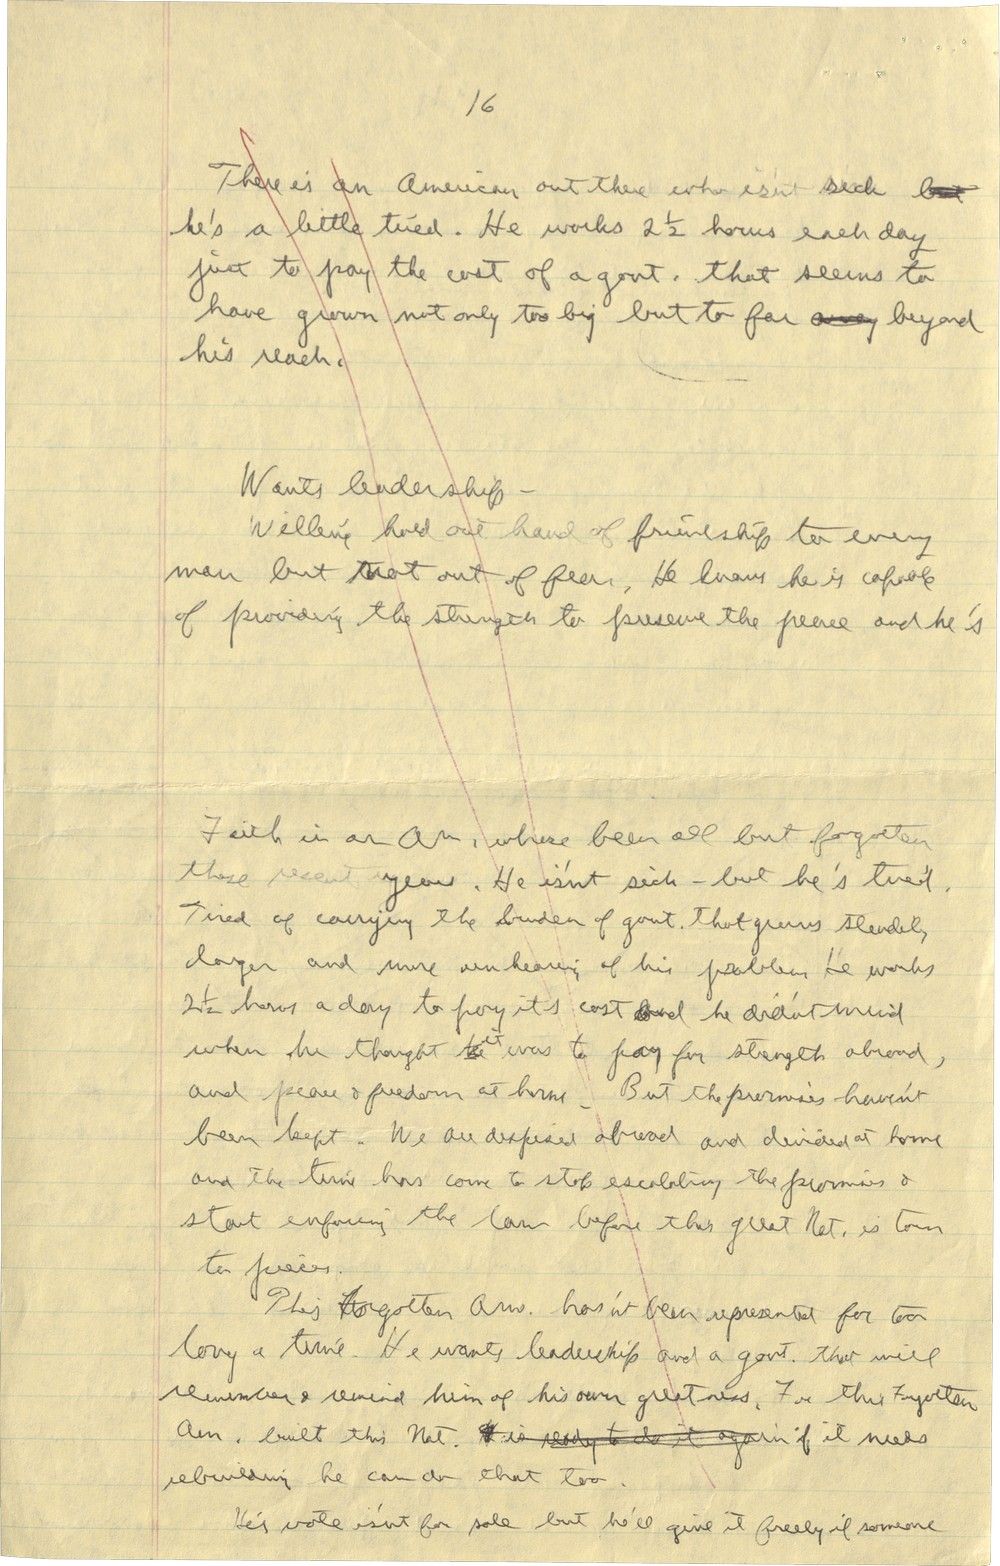 16
There is an American out there who isn't sick but
he's a little tired. He works 2½ hours each day
just to pay the cost of a govt. that seems to
have grown not only too big but to far away beyond
his reach.
Wants leadership –
Willing hold out hand of friendship to every
man but not out of fear. He knows he is capable
of providing the strength to preserve the peace and he's
Faith in an Am. whose been all but forgotten
these recent years. He isn't sick – but he's tired.
Tired of carrying the burden of govt. that grows steadily
larger and more unhearing of his problem He works
2½ hours a day to pay its cost and he didn't mind
when he thought it was to pay for strength abroad,
and peace & freedom at home. But the promises haven't
been kept. We are despised abroad and divided at home
and the time has come to stop escalating the promises &
start enforcing the law before this great Nat. is torn
to pieces.
This Forgotten Am. hasn't been represented for too
long a time. He wants leadership and a govt. that will
remember & remind him of his own greatness. For this Forgotten
Am. built this Nat. is ready to do it again if it needs
rebuilding he can do that too.
His vote isn't for sale but he'll give it freely if someone